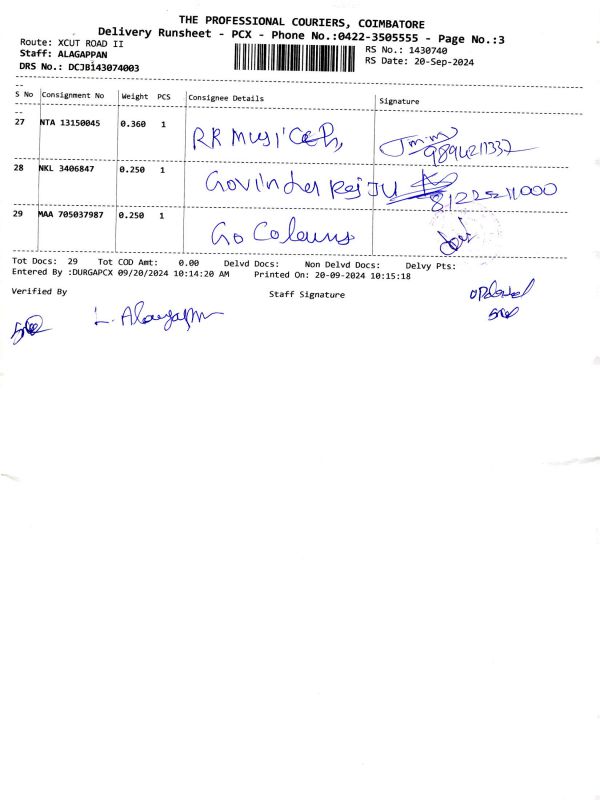 THE PROFESSIONAL COURIERS, COIMBATORE
Delivery Runsheet - PCX - Phone No.:0422-3505555 - Page No.:3
Route: XCUT ROAD II
RS No.: 1430740
Staff: ALAGAPPAN
RS Date: 20-Sep-2024
DRS No.: DCJB143074003
S No Consignment No Weight PCS Consignee Details Signature
27 NTA 13150045 0.360 1 RR
9894211337
28 NKL 3406847 0.250 1 Govinda Raj
8122211000
29 MAA 705037987 0.250 1 Go Colours
Tot Docs: 29 Tot COD Amt: 0.00 Delvd Docs: Non Delvd Docs: Delvy Pts:
Entered By :DURGAPCX 09/20/2024 10:14:20 AM Printed On: 20-09-2024 10:15:18
Verified By Staff Signature
L. Alagappan